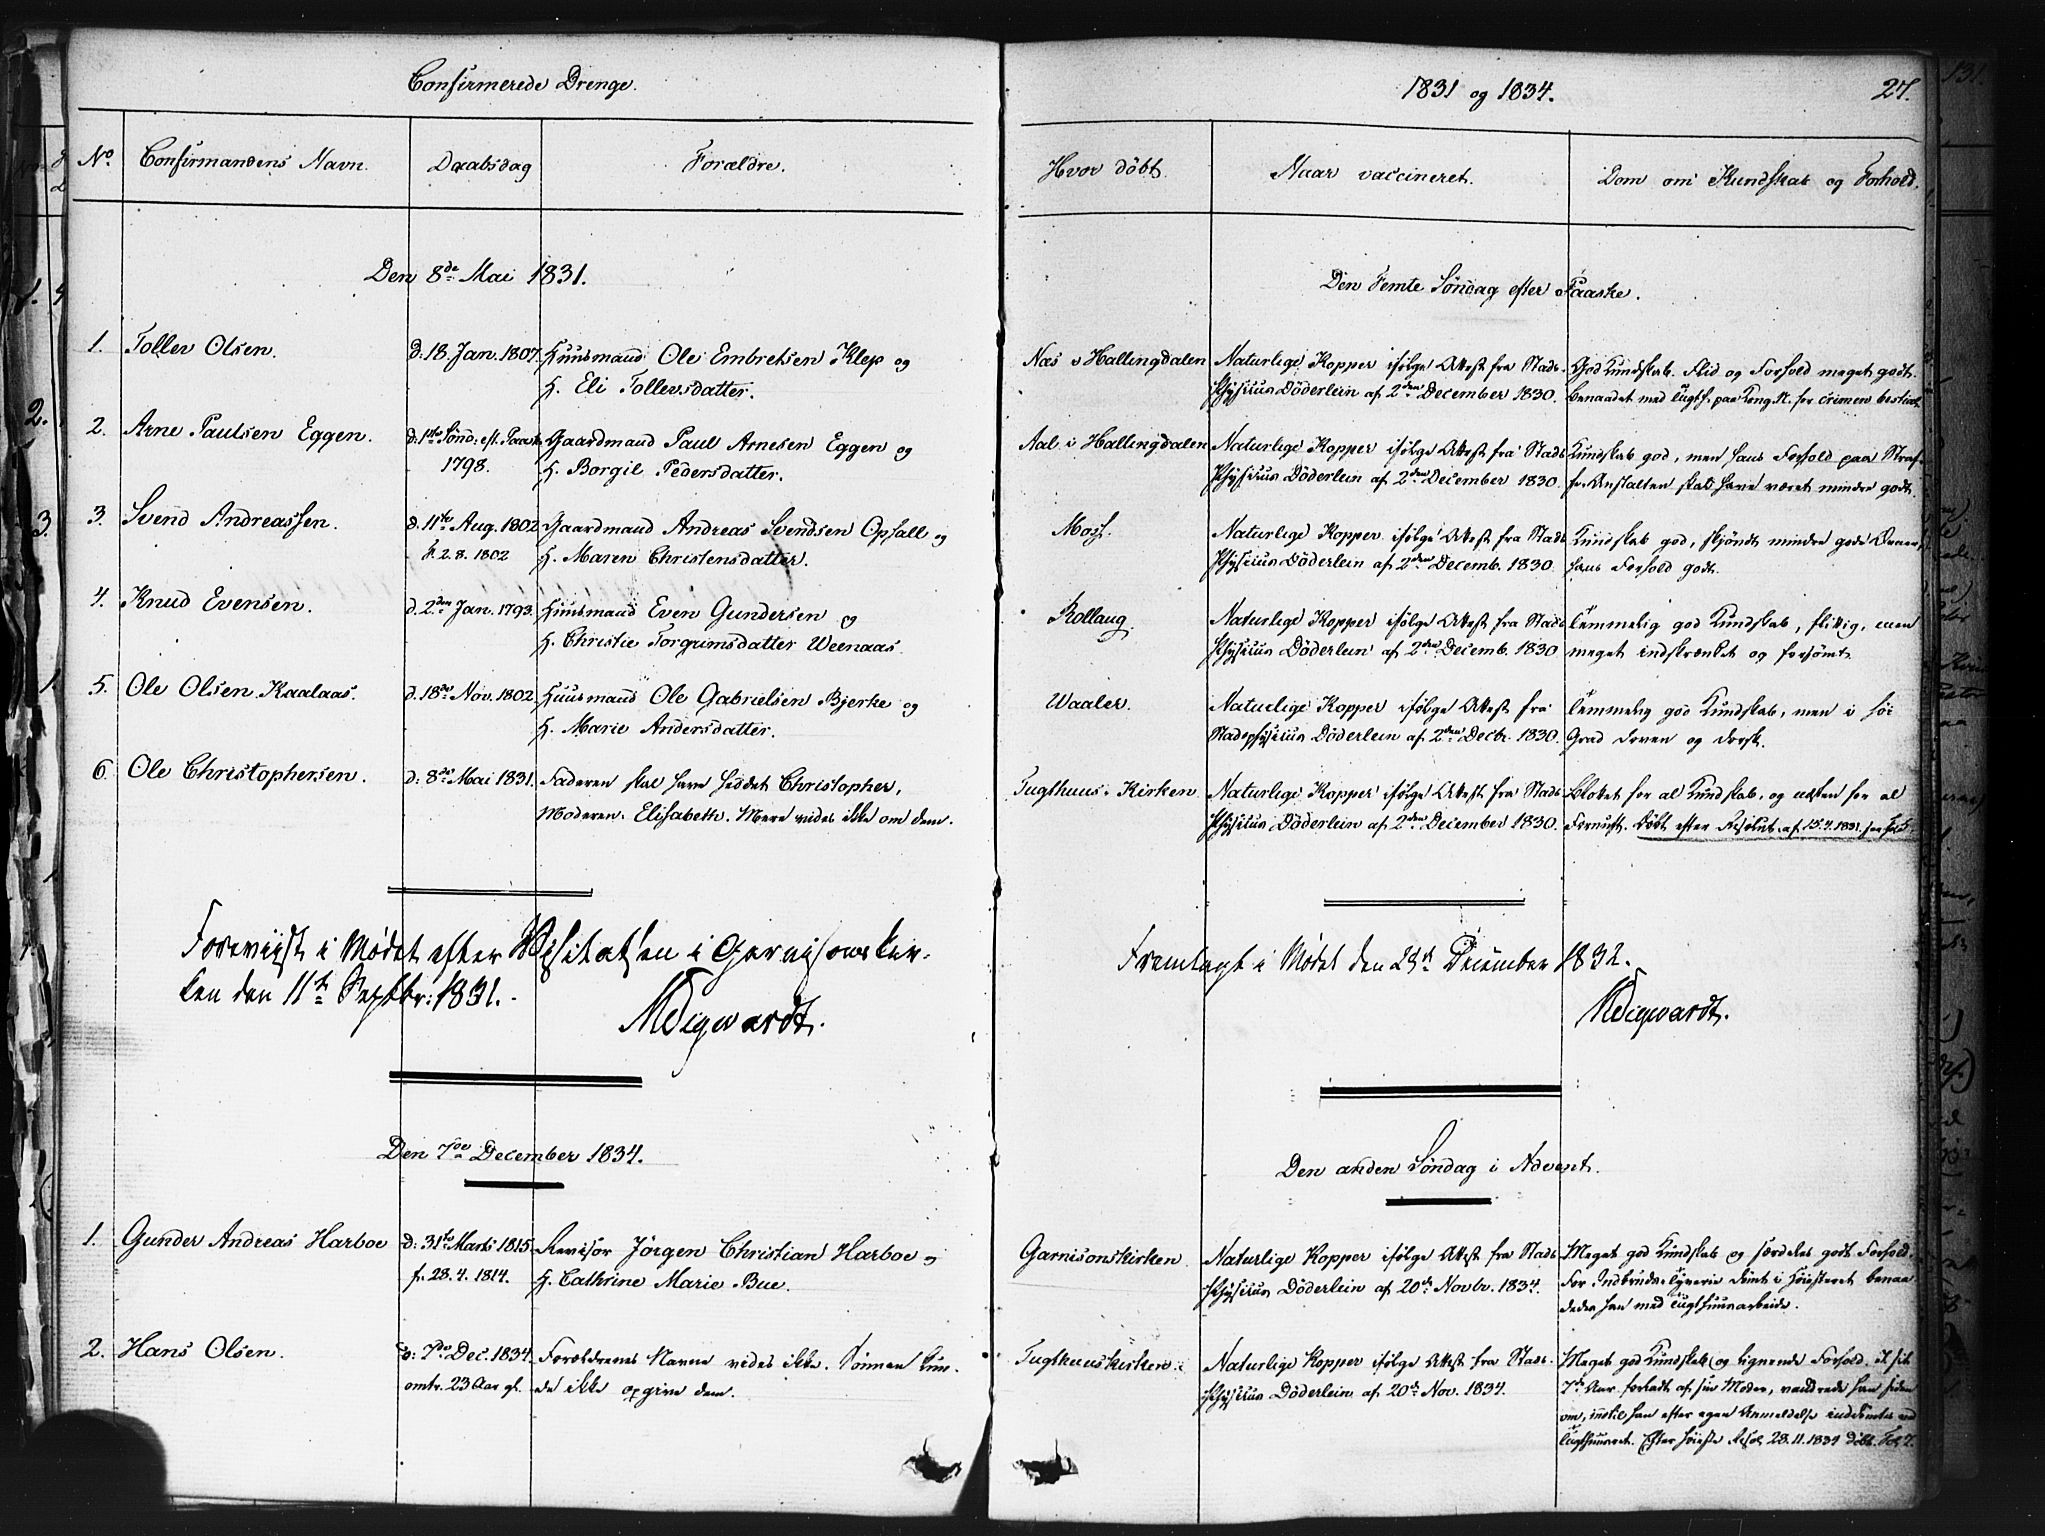 Confirmerede Drenge.
1831 og 1834.
27.
No.
Confirmandens Navn.
Daabsdag
Forældre.
Hvor döbt.
Naar vaccineret.
Dom om Kundskab og Forhold.
Den 8de Mai 1831.
Den Femte Söndag efter Paaske.
1. Tollev Olsen.
d: 18. Jan. 1807.
Huusmand Ole Embretsen Klep og
H. Eli Tollevsdatter.
Næs i Hallingdalen
Naturlige Kopper ifölge Attest fra Stads-
Physicus Döderlein af 2den December 1830.
God Kundskab. Flid og Forhold meget godt.
benaadet med Tugth. paa Kong. N. for crimen bestial.
2. Arne Paulsen Eggen.
d: 1ste Sönd: eft. Paaske
1798.
Gaardmand Paul Arnesen Eggen og
H. Borgil Pedersdatter.
Aal i Hallingdalen
Naturlige Kopper ifölge Attest fra Stads
Physicus Döderlein af 2den December 1830.
Kundskab god, men hans Forhold paa Straf-
fe-Anstalten skal have været mindre godt.
3. Svend Andreassen.
d. 11te Aug. 1802
f. 2. 8. 1802
Gaardmand Andreas Svendsen Opsall og
H. Maren Christensdatter.
Moss.
Naturlige Kopper ifölge Attest fra Stads
Physicus Döderlein af 2den Decemb. 1830
Kundskab god, skjöndt mindre gode Evner,
hans Forhold godt.
4. Knud Evensen.
d. 2den Jan. 1793.
Huusmand Even Gundersen og
H. Christie Torgrimsdatter Weenaas.
Rollaug.
Naturlige Kopper ifölge Attest fra Stads
Physicus Döderlein af 2den Decemb. 1830
temmelig god Kundskab, flittig, men
meget indskrænket og forsömt.
5. Ole Olsen Kaalaas.
d. 18de Nov. 1802.
Huusmand Ole Gabrielsen Bjerke og
H. Marie Andersdatter.
Waaler.
Naturlige Kopper ifölge Attest fra
Stadsphysicus Döderlein af 2den Decbr. 1830.
temmelig god Kundskab, men i höi
Grad doven og dorsk.
6. Ole Christophersen.
d: 8de Mai 1831.
Faderen skal have heddet Christopher,
Moderen Elisabeth. Mere vides ikke om dem.
Tugthuus-Kirken
Naturlige Kopper ifölge Attest fra Stads
Physicus Döderlein af 2den December 1830.
Blottet for al Kundskab, og næsten for al
Fornuft. Döbt efter Resolut. af 15.4.1831.
Foreviist i Mödet efter Visitatsen i Garnisonskir-
ken den 11te Septbr: 1831.
NDigwardt.
Fremlagt i Mödet den 23de December 1832.
NDigwardt.
Den 7de December 1834.
Den anden Söndag i Advent.
1. Gunder Andreas Harboe
d: 31te Marts 1815
f. 28. 4. 1814.
Revisor Jörgen Christian Harboe og
H. Cathrine Marie Bue.
Garnisonskirken
Naturlige Kopper ifölge Attest fra Stads
Physicus Döderlein af 20de Novbr. 1834.
Meget god Kundskab og særdeles godt Forhold.
For Indbrudstyverie dömt i Höiesteret benaa-
dedes han med Tugthuusarbeide.
2. Hans Olsen.
d: 7de Dec. 1834
omtr. 23 Aar gl.
Forældrenes Navne vides ikke. Sönnen kun-
de ikke opgive dem.
Tugthuuskirken
Naturlige Kopper ifölge Attest fra Stads-
Physicus Döderlein af 20de Nov. 1834.
Meget god Kundskab og lignende Forhold. I sit
7de Aar forladt af sin Moder, vandrede han siden
om, indtil han efter egen Anmeldelse inddömtes ved
Tugthuuset. Efter höieste Resol. 28.11.1834 döbt. Fol. 7.